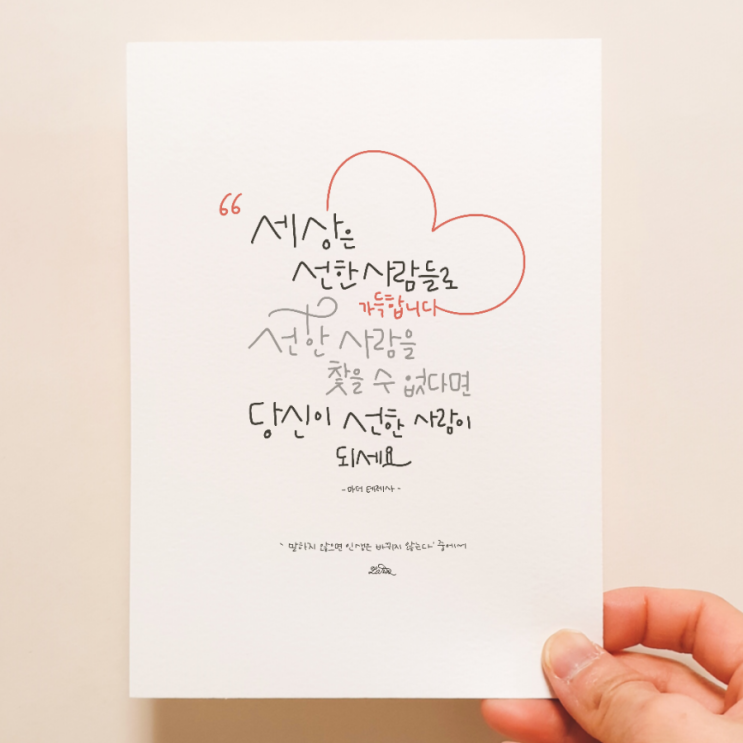 “ 세상은
선한 사람들로
가득합니다
선한 사람을
찾을 수 없다면
당신이 선한 사람이
되세요
- 마더 테레사 -
` 말하지 않으면 인생은 바뀌지 않는다' 중에서